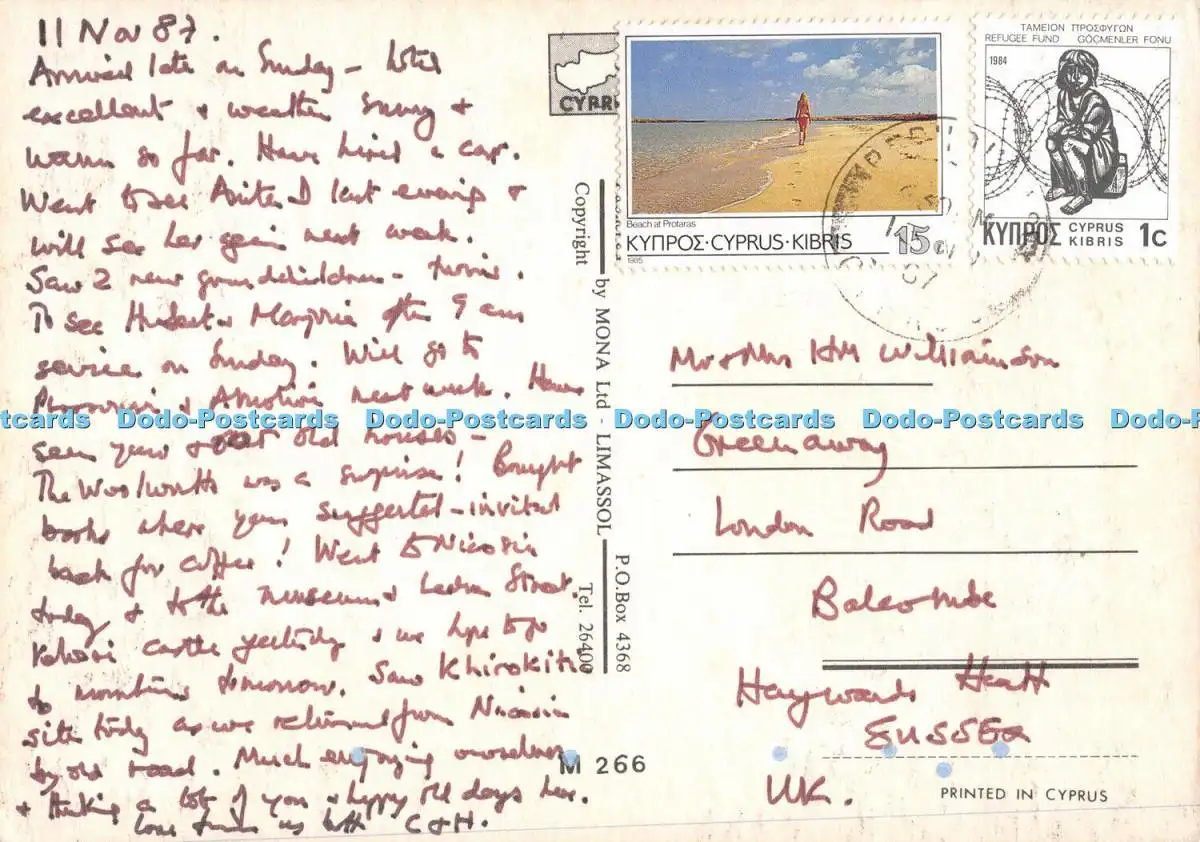 11 Nov 87.
Arrived late on Sunday - hotel
excellent & weather sunny &
warm so far. Have hired a car.
Went to see Anita D last evening &
will see her again next week.
Saw 2 new grandchildren - twins.
To see Hubert & Marjorie after 9 am
service on Sunday. Will go to
& next week. Have
seen yours & our old houses -
The Woolworths was a surprise! Bought
books where you suggested - invited
back for coffee! Went to Nicosia
today & to the museum & Ledra Street.
Kolossi castle yesterday & we hope to go
to mountains tomorrow. Saw Khirokitia
site today as we returned from Nicosia
by old road. Much enjoying ourselves
& thinking a lot of you & happy old days here.
Love from us both C & H.
CYPR
Copyright by MONA Ltd - LIMASSOL
P.O.Box 4368
Tel. 26400
M 266
Beach at Protaras
ΚΥΠΡΟΣ·CYPRUS·KIBRIS 15c
1985
ΤΑΜΕΙΟΝ ΠΡΟΣΦΥΓΩΝ
REFUGEE FUND GÖÇMENLER FONU
1984
ΚΥΠΡΟΣ CYPRUS KIBRIS 1c
Mr & Mrs HM Williamson
Greenaway
London Road
Balcombe
Haywards Heath
SUSSEX
UK.
PRINTED IN CYPRUS
Dodo-Postcards Dodo-Postcards Dodo-Postcards Dodo-Postcards